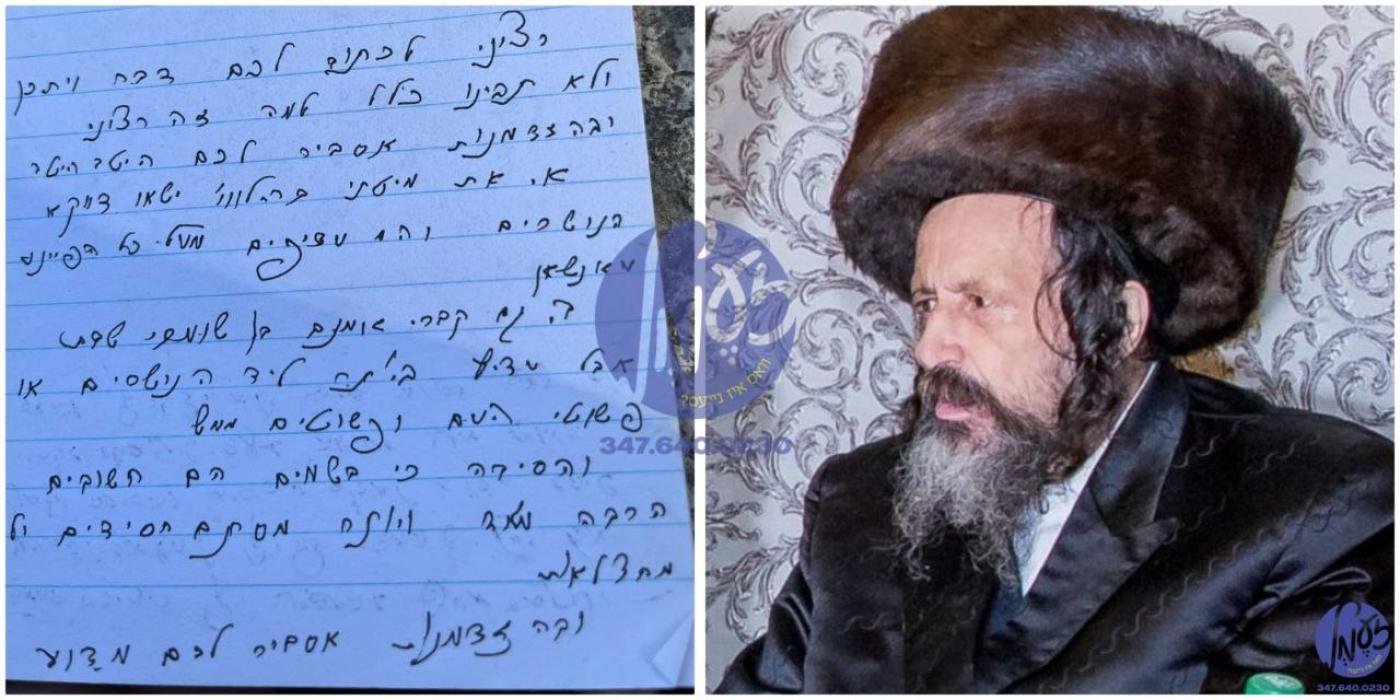 רציני לכתוב לכם דבר ויתכן
ולא תבינו כלל למה זה רצוני
ובהזדמנות אסביר לכם היטב היטב
א. את מיטתי בהלווי' ישאו דווקא
הנושרים והם עדיפים מעל כל הפיינע
מאנשאן
ב) גם קברי אומנם בן שומרי שבת
אבל עדיף ביותר ליד הנושרים או
פשוטי העם ופשוטים ממש
והסיבה כי בשמים הם חשובים
הרבה מאד ויותר מסתם חסידים
ובהזדמנות אסביר לכם מדוע
וואס איז נייעס?
347.640.0230
347.640.0230